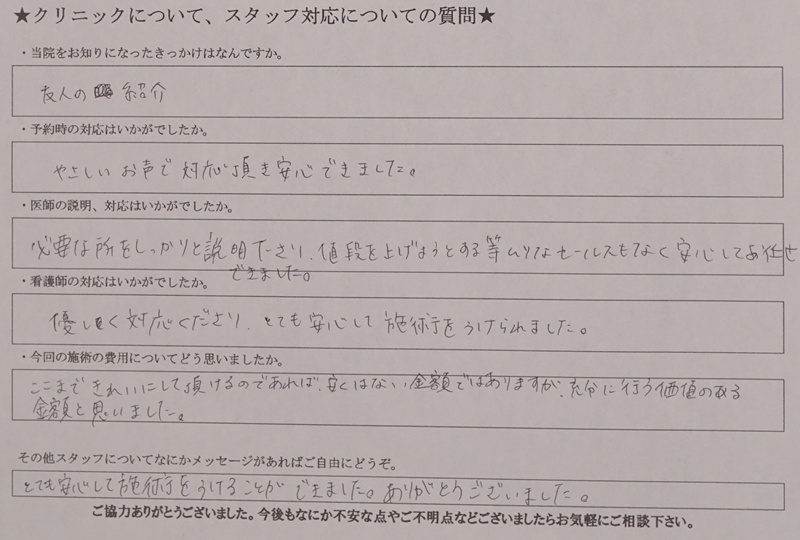 ★クリニックについて、スタッフ対応についての質問★
・当院をお知りになったきっかけはなんですか。
友人の 紹介
・予約時の対応はいかがでしたか。
やさしい お声で 対応頂き安心できました。
・医師の説明、対応はいかがでしたか。
必要な所をしっかりと説明下さり、値段を上げようとする等ムリなセールスもなく安心してお任せ
できました。
・看護師の対応はいかがでしたか。
優しく対応くださり、とても安心して施術をうけられました。
・今回の施術の費用についてどう思いましたか。
ここまできれいにして頂けるのであれば、安くはない金額ではありますが、充分に行う価値のある
金額と思いました。
その他スタッフについてなにかメッセージがあればご自由にどうぞ。
とても安心して施術をうけることができました。ありがとうございました。
ご協力ありがとうございました。今後もなにか不安な点やご不明点などございましたらお気軽にご相談下さい。